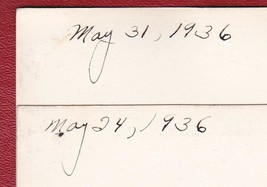 May 31, 1936
May 24, 1936